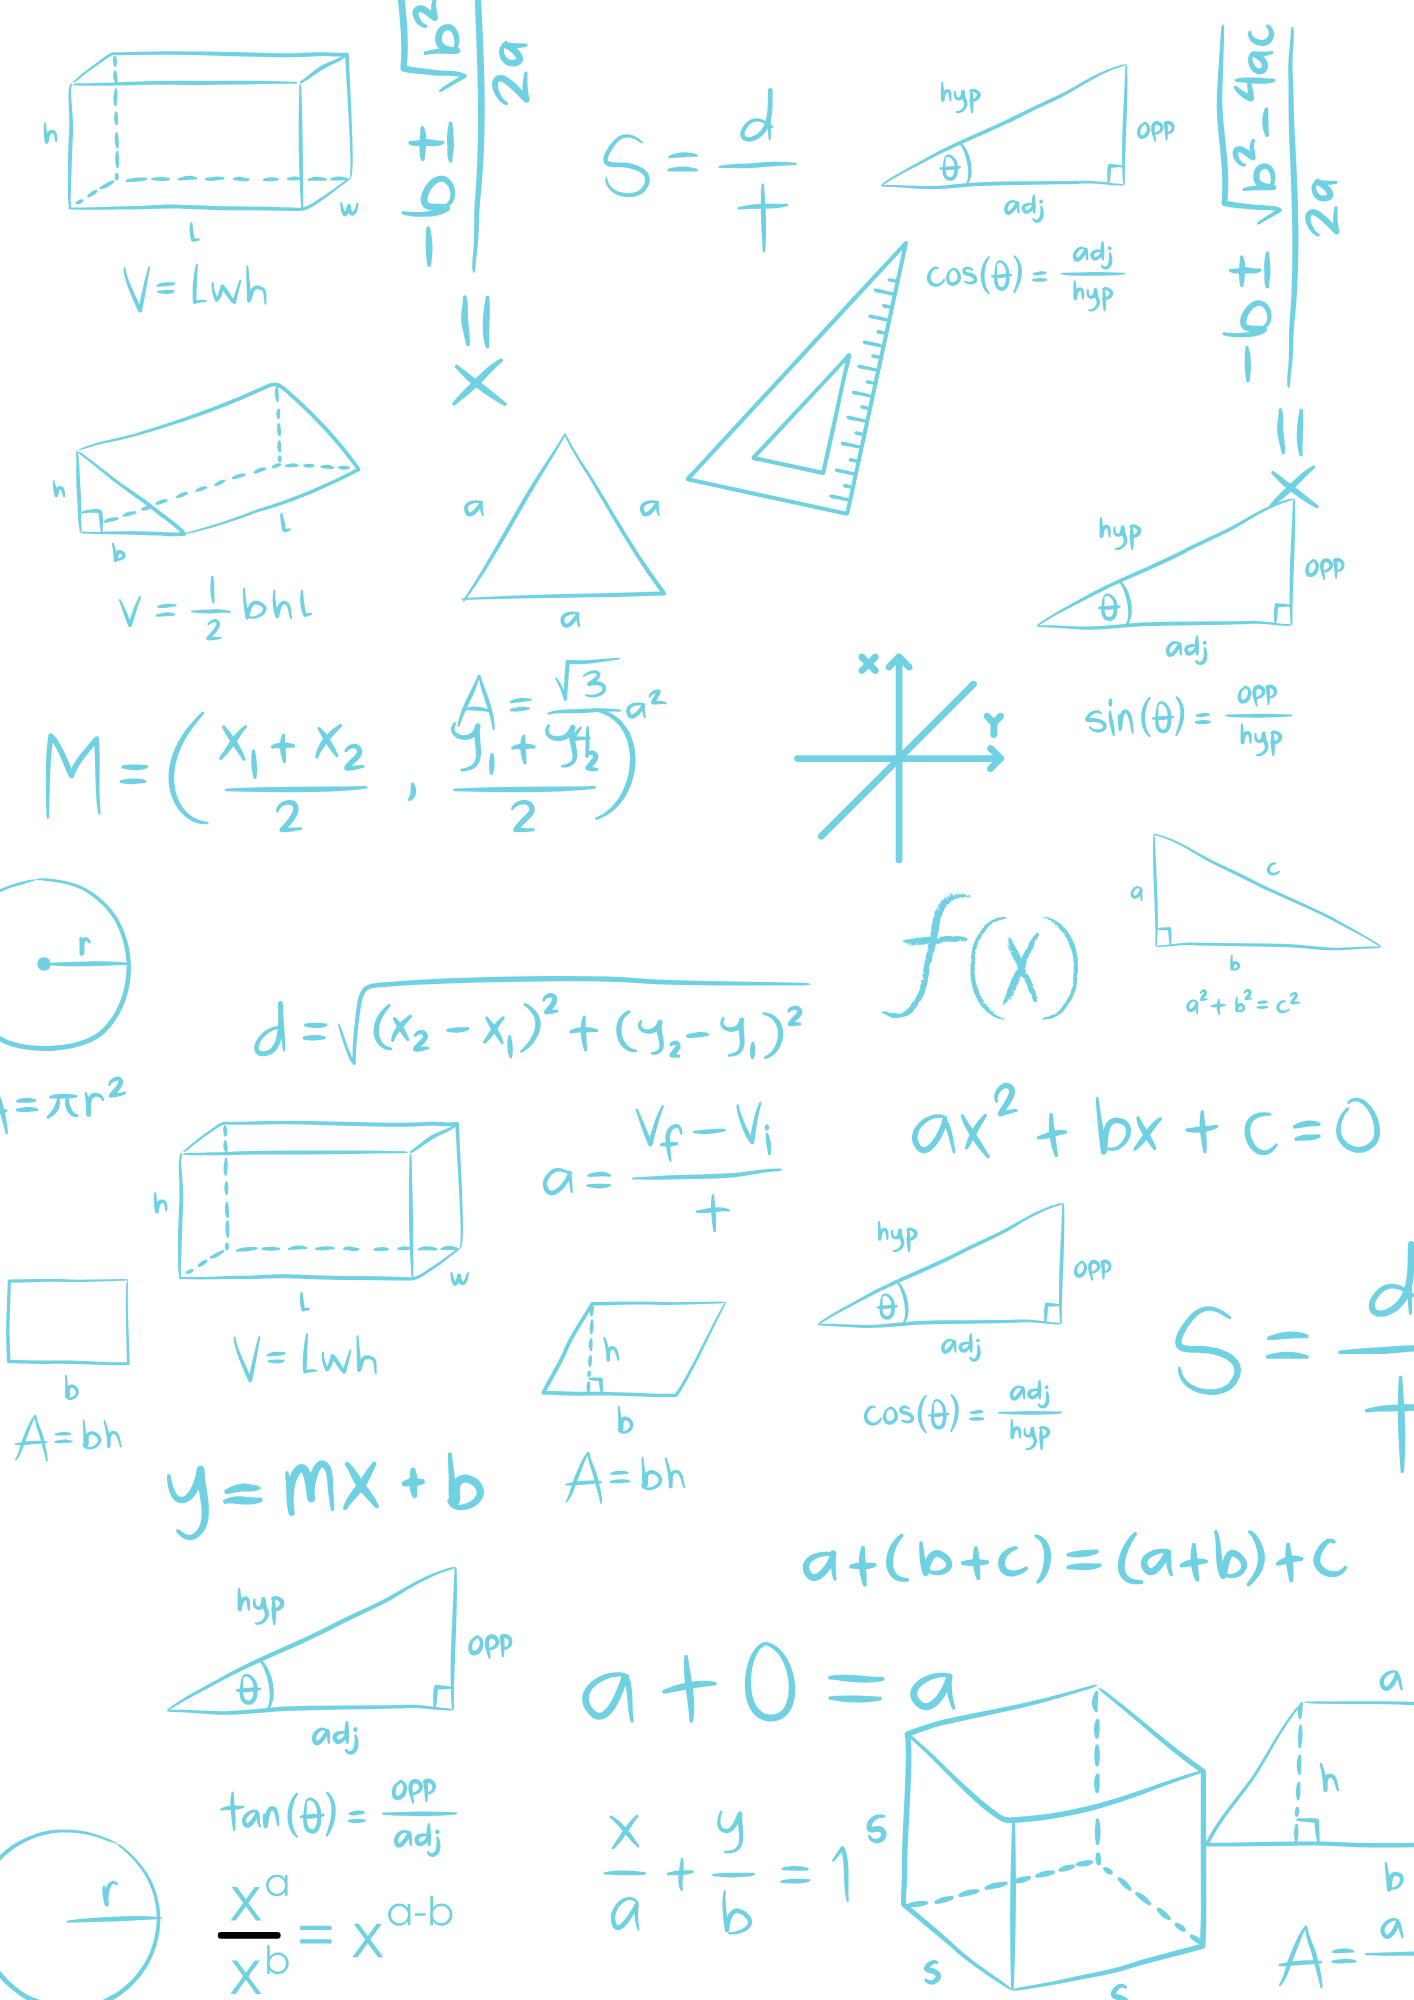 h
w
L
V = Lwh
x = -b ± √b²
2a
S = d/t
hyp
opp
θ
adj
cos(θ) = adj/hyp
x = -b ± √b² - 4ac
2a
h
b
L
V = 1/2 bhl
a
a
a
A = √3/4 a²
hyp
opp
θ
adj
sin(θ) = opp/hyp
M = (x₁ + x₂/2 , y₁ + y₂/2)
X
Y
r
A = πr²
f(x)
a
c
b
a² + b² = c²
d = √(x₂ - x₁)² + (y₂ - y₁)²
a = Vf - Vi/t
ax² + bx + c = 0
h
w
L
V = Lwh
b
A = bh
h
b
A = bh
hyp
opp
θ
adj
cos(θ) = adj/hyp
S = d/t
y = mx + b
a + (b + c) = (a + b) + c
hyp
opp
θ
adj
tan(θ) = opp/adj
a + 0 = a
s
s
s
a
h
b
A = a
x/a + y/b = 1
r
xᵃ/xᵇ = xᵃ⁻ᵇ